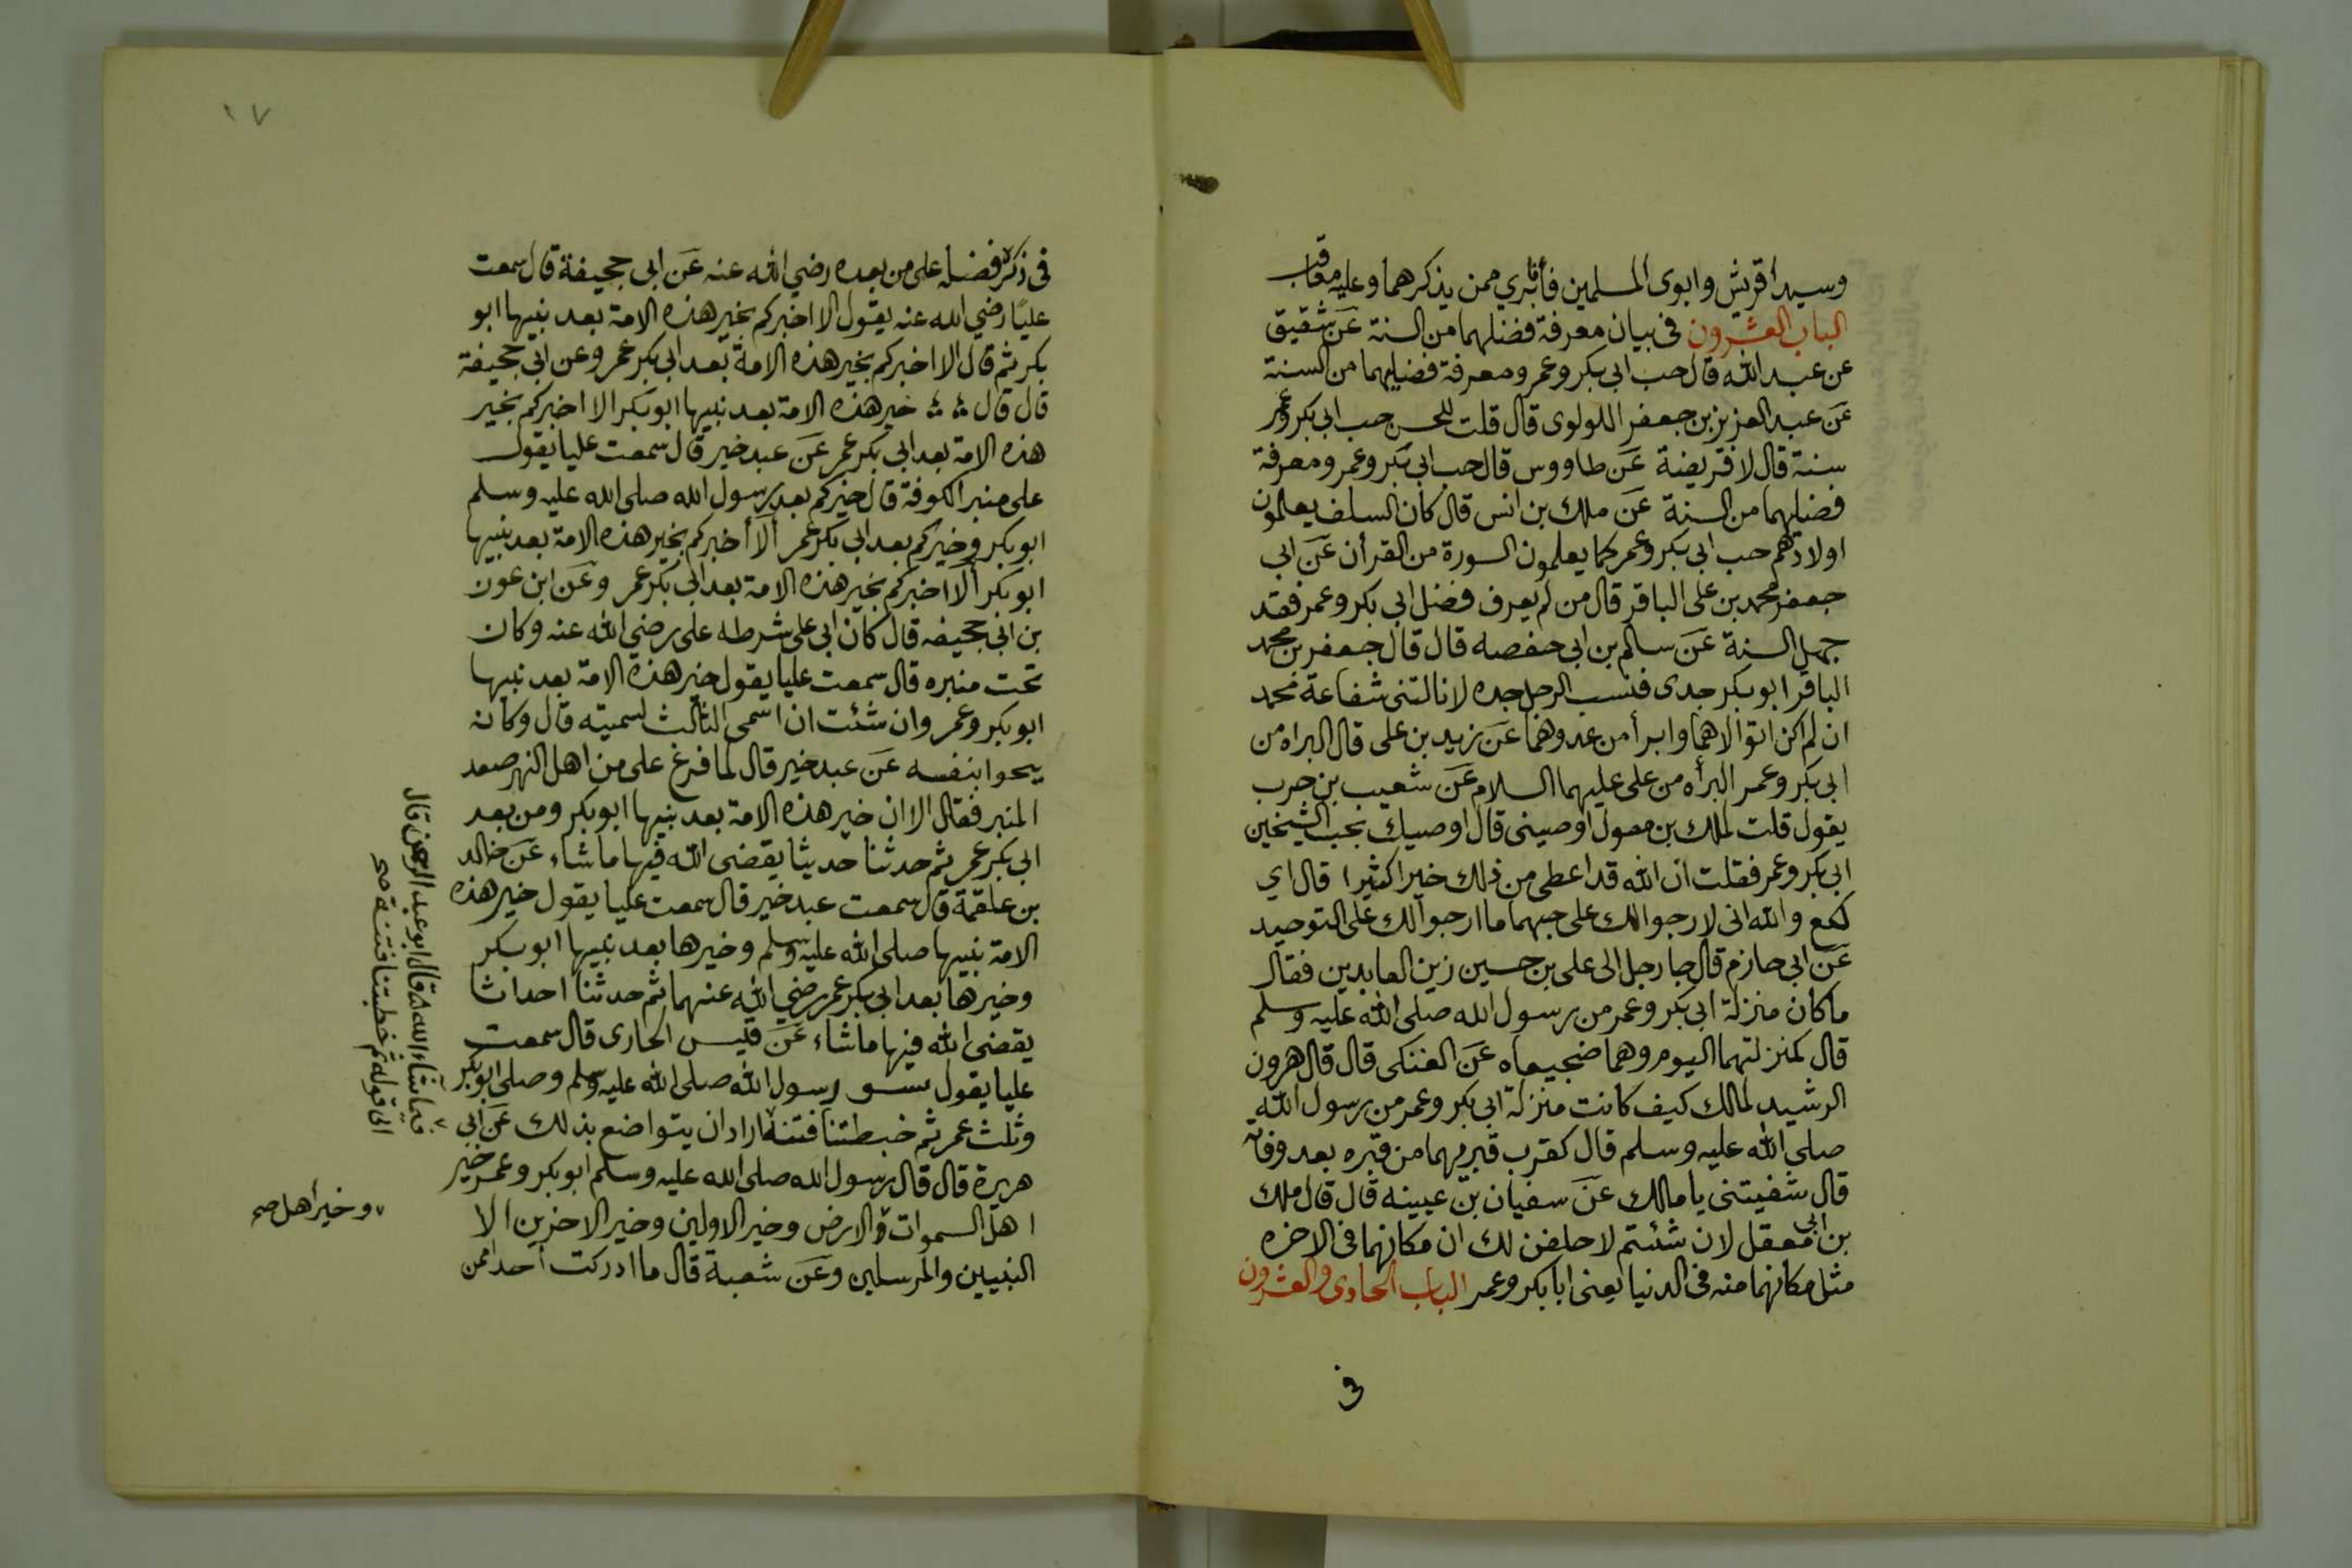 وسيدا قريش وابوى المسلمين فأنا بري ممن يذكرهما وعليه معاقب
الباب العشرون فى بيان معرفة فضلهما من السنة عن شقيق
عن عبد الله قال حب ابى بكر وعمر ومعرفة فضلهما من السنة
عن عبد العزيز بن جعفر اللولوى قال قلت للحسن حب ابى بكر وعمر
سنة قال لا فريضة عن طاووس قال حب ابى بكر وعمر ومعرفة
فضلهما من السنة عن ملك بن انس قال كان السلف يعلمون
اولادهم حب ابى بكر وعمر كما يعلمون السورة من القرأن عن ابى
جعفر محمد بن على الباقر قال من لم يعرف فضل ابى بكر وعمر فقد
جهل السنة عن سالم بن ابى حفصه قال قال جعفر بن محمد
الباقر ابو بكر جدى فيسب الرجل جده لا نالتنى شفاعة محمد
ان لم اكن اتوالاهما وابرأ من عدوهما عن زيد بن على قال البراه من
ابى بكر وعمر البرأه من على عليهما السلام عن شعيب بن حرب
يقول قلت لملك بن معول اوصينى قال اوصيك بحب الشيخين
ابى بكر وعمر فقلت ان الله قد اعطى من ذلك خيرا كثيرا قال اي
لكع والله انى لارجوا لك على حبهما ما ارجوا لك على التوحيد
عن ابى حازم قال جا رجل الى على بن حسين زين العابدين فقال
ما كان منزلة ابى بكر وعمر من رسول الله صلى الله عليه وسلم
قال كمنزلتهما اليوم وهما ضجيعاه عن العتكى قال قال هرون
الرشيد لمالك كيف كانت منزلة ابى بكر وعمر من رسول الله
صلى الله عليه وسلم قال كقرب قبريهما من قبره بعد وفاته
قال شفيتنى يا مالك عن سفيان بن عيينه قال قال ملك
بن ابى معقل لان شئتم لاحلفن لك ان مكانهما فى الاخره
مثل مكانهما منه فى الدنيا يعنى ابا بكر وعمر الباب الحادى والعشرون
فى
١٧
فى ذكر فضله على من بعده رضي الله عنه عن ابى جحيفة قال سمعت
عليًا رضي الله عنه يقول الا اخبركم بخير هذه الامة بعد نبيها ابو
بكر ثم قال الا اخبركم بخير هذه الامة بعد ابى بكر عمر وعن ابى جحيفة
قال قال خير هذه الامة بعد نبيها ابو بكر الا اخبركم بخير
هذه الامة بعد ابى بكر عمر عن عبد خير قال سمعت عليا يقول
على منبر الكوفة قال خيركم بعد رسول الله صلى الله عليه وسلم
ابو بكر وخيركم بعد ابى بكر عمر ألا أخبركم بخير هذه الامة بعد نبيها
ابو بكر ألا اخبركم بخير هذه الامة بعد ابى بكر عمر وعن ابن عون
بن ابى جحيفه قال كان ابى على شرطه على رضي الله عنه وكان
تحت منبره قال سمعت عليا يقول خير هذه الامة بعد نبيها
ابو بكر وعمر وان شئت ان اسمى الثالث لسميته قال وكان
ينحوا بنفسه عن عبد خير قال لما فرغ على من اهل النهر صعد
المنبر فقال الا ان خير هذه الامة بعد نبيها ابو بكر ومن بعد
ابى بكر عمر ثم حدثنا حديثا يقضى الله فيها ما شاء عن خالد
بن علقمة قال سمعت عبد خير قال سمعت عليا يقول خير هذه
الامة نبيها صلى الله عليه وسلم وخيرها بعد نبيها ابو بكر
وخيرها بعد ابى بكر عمر رضي الله عنهما ثم حدثنا احداثا
يقضى الله فيها ما شاء عن قيس الحارى قال سمعت
عليا يقول رسول الله صلى الله عليه وسلم وصلى ابو بكر
وثلث عمر ثم خبطتنا فتنة اراد ان يتواضع بذلك عن ابى
هريرة قال قال رسول الله صلى الله عليه وسلم ابو بكر وعمر خير
اهل السموات والارض وخير الاولين وخير الاخرين الا
النبيين والمرسلين وعن شعبة قال ما ادركت احدا ممن
فيما شاء الله قال ابو عبد الرحمن قال
الى قوله ثم خطبتنا فتنة صح
وخير أهل صح